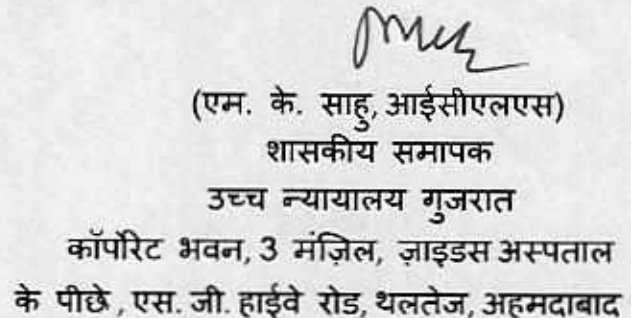 (एम. के. साहु, आईसीएलएस)
शासकीय समापक
उच्च न्यायालय गुजरात
कॉर्पोरेट भवन, 3 मंज़िल, ज़ाइडस अस्पताल
के पीछे , एस. जी. हाईवे रोड, थलतेज, अहमदाबाद